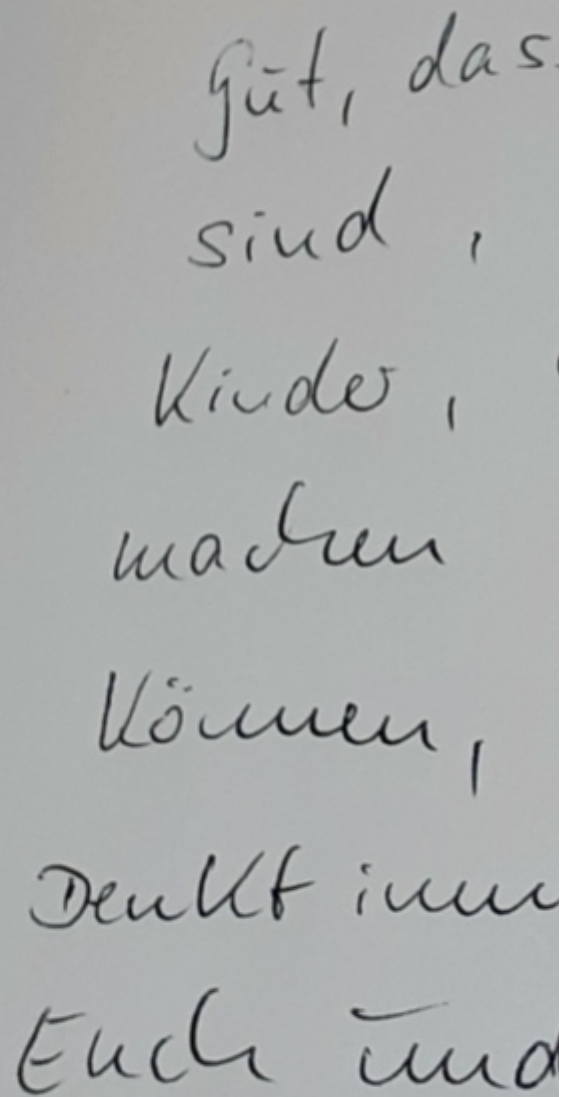 gut, das
sind,
Kinder,
machen
können,
Denkt imm
Euch und